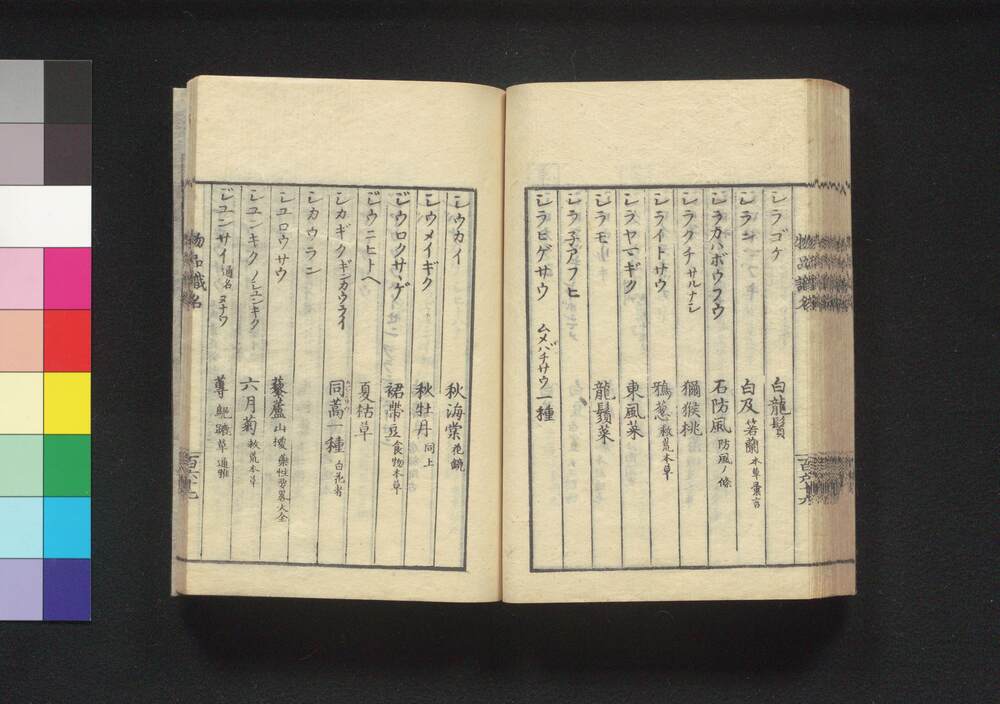 シラゴケ 白龍鬚
シラン 白及 箬蘭 本草彙言
シラカハボウフウ 石防風 防風ノ條
シラクチ サルナシ 獼猴桃
シライトサウ 鴉葱 救荒本草
シラヤマギク 東風菜
シラモ 龍鬚菜
シラ子アフヒ
シラヒゲサウ ムメバチサウ一種
物品識名
百六十六
シウカイ 秋海棠 花鏡
シウメイギク 秋牡丹 同上
ジウロクサヽゲ 裙帶豆 食物本草
ジウニヒトヘ 夏枯草
シカギク ギンカウライ 同蒿一種 白花者
シカウラン
シユロウサウ 藜蘆 山㮶 藥性要畧大全
シユンキク ノシユンキク 六月菊 救荒本草
ジユンサイ 通名 ヌナワ 蓴 草 通雅
物品識名
百六十七